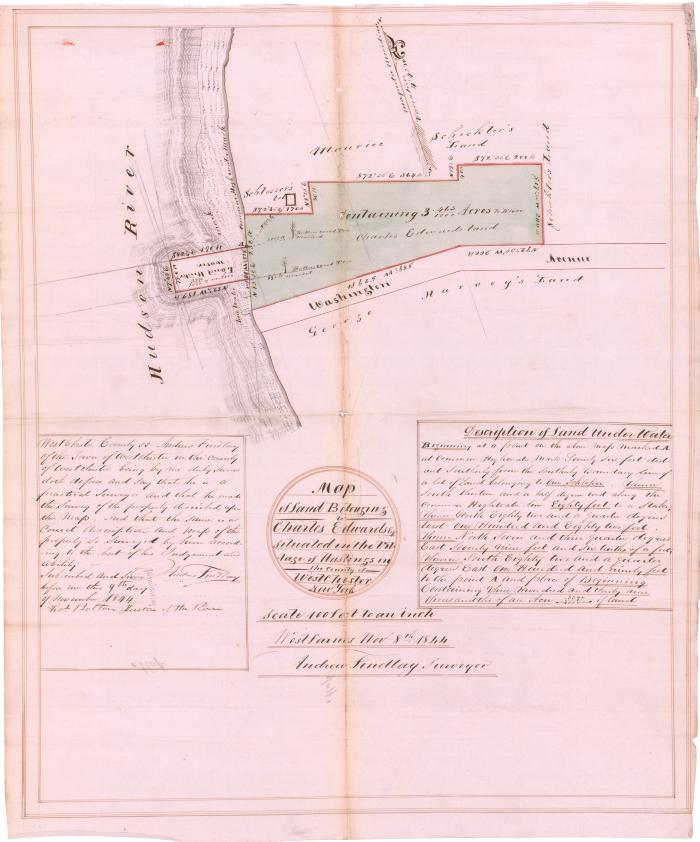 Maurice
Schickler's
Land
Schickler's Land
Schlosser's
Lot
S 72° 30' E 364
S 72° 30' E 200
Containing 3 463/1000 Acres
Charles Edwards land
Hudson River
Land Under
Water
Washington
Avenue
George
Harvey's Land
West Chester County ss Andrew Findlay
of the Town of West Chester in the County
of West Chester being by me duly sworn
doth depose and Say that he is a
practical Surveyor and that he made
the Survey of the property described upon
the Map. And that the same is a
Correct description and Map of the
property So Surveyed by him accord
ing to the best of his Judgement and
ability
Subscribed and Sworn
before me this 9th day
of November 1844
Andrew Findlay
Map
of Land Belonging
to
Charles Edwards Esq
Situated in the Vil
lage of Hastings in
the County of
West Chester
New York
Scale 100 feet to an inch
West Farms Nov 8th 1844
Andrew Findlay Surveyor
Description of Land Under Water
Beginning at a point on the above Map marked A
at Common Highwater Mark Seventy Six feet dist
ant Southerly from the Southerly Boundary line of
a lot of Land belonging to Schlosser. Thence
South thirteen and a half degrees west along the
Common Highwater line Eighty feet to a Stake,
thence North Eighty two and a quarter degrees
West One Hundred and Eighty feet
thence North Seven and three quarter degrees
East Seventy Nine feet and Six tenths of a foot
thence North Eighty two and a quarter
degrees East One Hundred and Ninety feet
to the point A and place of Beginning
Containing Three Hundred and thirty nine
thousandths of an Acre of land